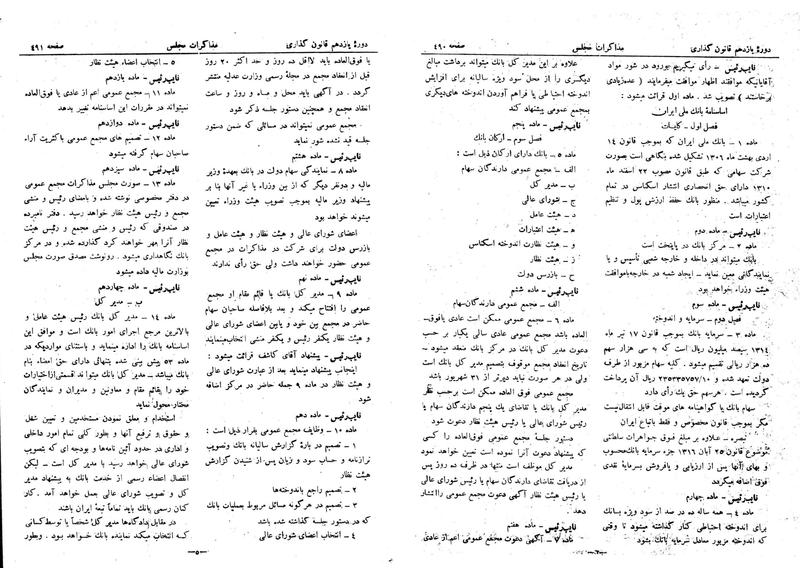 دورهٔ یازدهم قانون گذاری
مذاکرات مجلس
صفحه ۴۹۰
نایب‌رئیس - رأی میگیریم بورود در شور مواد
آقایانیکه موافقند اظهار موافقت میفرمایند (عده‌زیادی
برخاستند) تصویب شد . ماده اول قرائت میشود :
اساسنامهٔ بانك ملی ایران
فصل اول - کلیات
ماده ۱ - بانك ملی ایران که بموجب قانون ۱۴
اردی بهشت ماه ۱۳۰۶ تشکیل شده بنگاهی است بصورت
شرکت سهامی که طبق قانون مصوب ۲۲ اسفند ماه
۱۳۱۰ دارای حق انحصاری انتشار اسکناس در تمام
کشور میباشد . منظور بانك حفظ ارزش پول و تنظیم
اعتبارات است
نایب‌رئیس - ماده دوم
ماده ۲ - مرکز بانك در پایتخت است
بانك میتواند در داخله و خارجه شعبی تأسیس و یا
نمایندگانی معین نماید - ایجاد شعبه در خارجه باموافقت
هیئت وزراء خواهد بود
نایب‌رئیس - ماده سوم
فصل دوم - سرمایه و اندوخته
ماده ۳ - سرمایه بانك بموجب قانون ۱۷ تیر ماه
۱۳۱۴ سیصد میلیون ریال است که به سی هزار سهم
ده هزار ریالی تقسیم میشود . کلیه سهام مزبور از طرف
دولت تعهد شده و ۲۳۵۳۵۷۵۷/۱۰ ریال آن پرداخت
گردیده است . هر سهم حق یك رأی دارد
سهام بانك یا گواهینامه های موقت قابل انتقال‌نیست
مگر بموجب قانون مخصوص و فقط باتباع ایران
تبصره - علاوه بر مبلغ فوق جواهرات سلطنتی
موضوع قانون ۲۵ آبان ۱۳۱۶ جزء سرمایه بانك‌محسوب
و بهای آنها پس از ارزیابی و یافروش بسرمایهٔ نقدی
افزوده میگردد
نایب‌رئیس - ماده چهارم
ماده ۴ - همه ساله ده در صد از سود ویژه بانك
برای اندوخته احتیاطی کنار گذاشته میشود تا وقتی
که اندوخته مزبور معادل سرمایه بانك بشود
علاوه بر این مدیر کل بانك میتواند برداشت مبالغ
دیگری را از محل سود ویژه سالیانه برای افزایش
اندوخته احتیاطی یا فراهم آوردن اندوخته های دیگری
بمجمع عمومی پیشنهاد کند
نایب‌رئیس - ماده پنجم
فصل سوم - ارکان بانك
ماده ۵ - بانك دارای ارکان ذیل است :
الف - مجمع عمومی دارندگان سهام
ب - مدیر کل
ج - شورای عالی
د - هیئت عامل
ه - هیئت اعتبارات
و - هیئت نظارت اندوخته اسکناس
ز - هیئت نظار
ح - بازرس دولت
نایب‌رئیس - ماده ششم
الف - مجمع عمومی دارندگان سهام
ماده ۶ - مجمع عمومی ممکن است عادی یافوق‌
العاده باشد مجمع عمومی عادی سالی یکبار بر حسب
دعوت مدیر کل بانك در مرکز بانك منعقد میشود .
تاریخ انعقاد مجمع موقوف بتصمیم مدیر کل بانك است
ولی در هر صورت نباید دیرتر از ۳۱ شهریور باشد
مجمع عمومی فوق العاده ممکن است برحسب نظر
مدیر کل بانك یا تقاضای یك پنجم دارندگان سهام یا
رئیس شورای عالی یا رئیس هیئت نظار دعوت شود
دستور جلسهٔ مجمع عمومی فوق‌العاده را کسی
که دعوت آنرا نموده است تعیین خواهد نمود
مدیر کل موظف است منتها در ظرف ده روز پس
از دریافت تقاضای دارندگان سهام یا رئیس شورای عالی
یا رئیس هیئت نظار آگهی دعوت مجمع عمومی راانتشار
دهد
نایب‌رئیس - ماده هفتم
ماده ۷ - آگهی دعوت مجمع عمومی اعم از عادی
دورهٔ یازدهم قانون گذاری
مذاکرات مجلس
صفحه ۴۹۱
یا فوق‌العاده باید لااقل ده روز و حد اکثر ۲۰ روز
قبل از انعقاد مجمع در مجلهٔ رسمی وزارت عدلیه منتشر
گردد . در آگهی باید محل و ماه و روز و ساعت
انعقاد مجمع و همچنین دستور جلسه ذکر شود
مجمع عمومی نمیتواند در مسائلی که ضمن دستور
جلسه قید نشده شور نماید
نایب‌رئیس - ماده هشتم
ماده ۸ - نمایندگی سهام دولت در بانك بعهدهٔ وزیر
مالیه و دونفر دیگر که از بین وزراء یا غیر آنها بنا بر
پیشنهاد وزیر مالیه بموجب تصویب هیئت وزراء تعیین
میشوند خواهد بود
اعضای شورای عالی و هیئت نظار و هیئت عامل و
بازرس دولت برای شرکت در مذاکرات در مجمع
عمومی حضور خواهند داشت ولی حق رأی ندارند
نایب‌رئیس - ماده نهم
ماده ۹ - مدیر کل بانك یا قائم مقام او مجمع
عمومی را افتتاح میکند و بعد بلافاصله صاحبان سهام
حاضر در مجمع بین خود و یابین اعضای شورای عالی
و هیئت نظار یکنفر رئیس و یکنفر منشی انتخاب‌مینمایند
نایب‌رئیس - پیشنهاد آقای کاشف قرائت میشود :
اینجانب پیشنهاد مینماید بعد از عبارت شورای عالی
و هیئت نظار در ماده ۹ جمله حاضر در مرکز اضافه
شود
نایب‌رئیس - ماده دهم
ماده ۱۰ - وظایف مجمع عمومی بقرار ذیل است :
۱ - تصمیم در بارهٔ گزارش سالیانه بانك وتصویب
ترازنامه و حساب سود و زیان پس از شنیدن گزارش
هیئت نظار
۲ - تصمیم راجع باندوخته‌ها
۳ - تصمیم در هرگونه مسائل مربوط بعملیات بانك
که در دستور جلسه گذاشته شده باشد
۴ - انتخاب اعضای شورای عالی
۵ - انتخاب اعضاء هیئت نظار
نایب‌رئیس - ماده یازدهم
ماده ۱۱ - مجمع عمومی اعم از عادی یا فوق‌العاده
نمیتواند در مقررات این اساسنامه تغییر بدهد
نایب‌رئیس - ماده دوازدهم
ماده ۱۲ - تصمیم های مجمع عمومی باکثریت آراء
صاحبان سهام گرفته میشود
نایب‌رئیس - ماده سیزدهم
ماده ۱۳ - صورت مجلس مذاکرات مجمع عمومی
در دفتر مخصوصی نوشته شده و بامضای رئیس و منشی
مجمع و رئیس هیئت نظار خواهد رسید . دفتر نامبرده
در صندوقی که رئیس و منشی مجمع و رئیس هیئت
نظار آنرا مهر خواهند کرد گذارده شده و در مرکز
بانك نگاهداری میشود . رونوشت مصدق صورت مجلس
بوزارت مالیه داده میشود
نایب‌رئیس - ماده چهاردهم
ب - مدیر کل
ماده ۱۴ - مدیر کل بانك رئیس هیئت عامل و
بالاترین مرجع اجرای امور بانك است و موافق این
اساسنامه بانك را اداره مینماید و باستثنای مواردیکه در
ماده ۵۳ پیش بینی شده بتنهائی دارای حق امضاء بنام
بانك میباشد . مدیر کل بانك میتواند قسمتی‌ازاختیارات
خود را بقائم مقام و معاونین و مدیران و نمایندگان
مختار محول نماید
استخدام و معلق نمودن مستخدمین و تعیین شغل
و حقوق و ترفیع آنها و بطور کلی تمام امور داخلی
و اداری در حدود آئین نامه‌ها و بودجه ای که بتصویب
شورای عالی خواهد رسید با مدیر کل است - لیکن
انفصال اعضاء رسمی از خدمت بانك به پیشنهاد مدیر
کل و تصویب شورای عالی بعمل خواهد آمد . کار
کنان رسمی بانك باید تماماً تبعهٔ ایران باشند
در مقابل دادگاه‌ها مدیر کل شخصاً یا توسط‌کسانی
که انتخاب میکند نماینده بانك خواهد بود . وبطور
-۵-